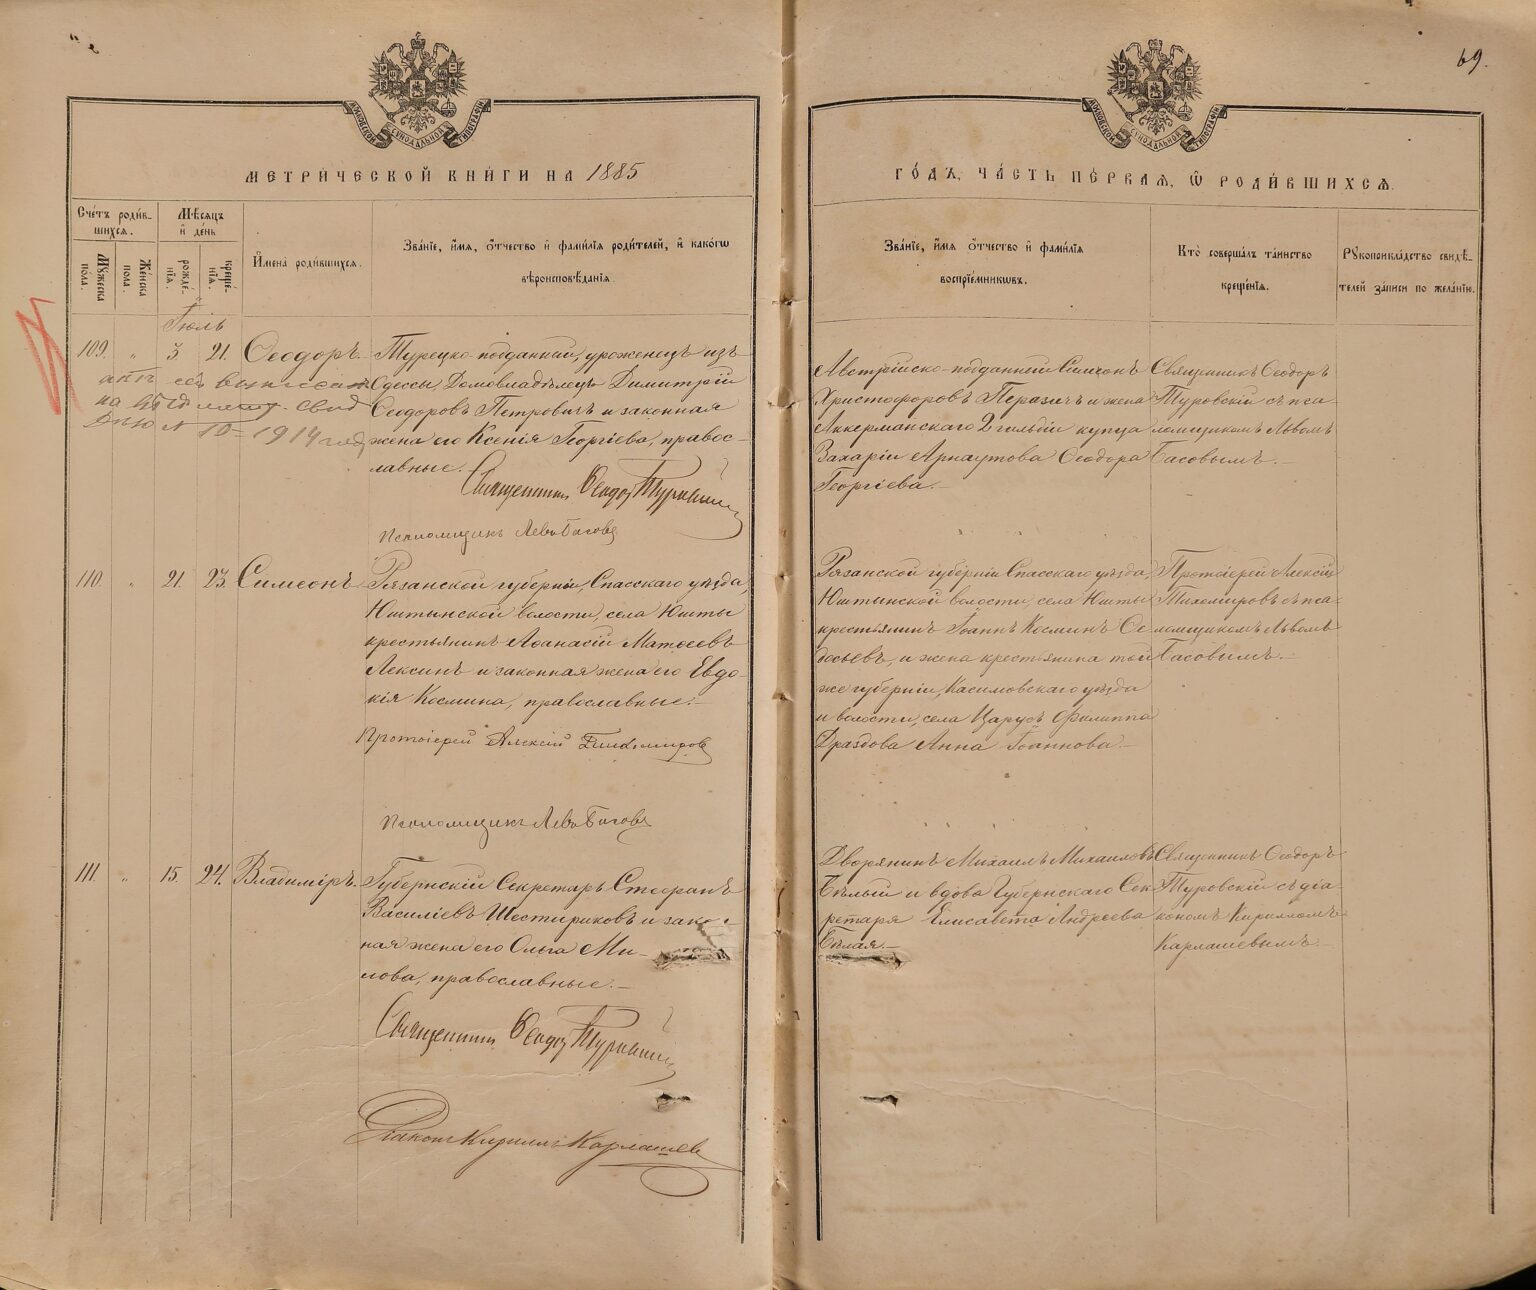 69.
МЕТРИ́ЧЕСКОЙ КНИ́ГИ НА 1885
ГО́ДЪ, ЧА́СТЬ ПЕ́РВАѦ, Ѿ РОДИ́ВШИХСѦ.
Сче́тъ роди́в-
шихсѧ.
Мꙋ́жеска по́ла.
Же́нска по́ла.
Мѣ́сѧцъ
и҆ де́нь
рожде́-
нїѧ.
креще́-
нїѧ.
И҆мена̀ роди́вшихсѧ.
Зва́нїе, и҆́мѧ, ѻ҆́тчество и҆ фами́лїѧ роди́телей, и҆ како́гѡ
вѣроисповѣ́данїѧ.
Зва́нїе, и҆́мѧ ѻ҆́тчество и҆ фами́лїѧ
воспрїе́мникѡвъ.
Кто̀ соверша́лъ та́инство
креще́нїѧ.
Рꙋкоприкла́дство свидѣ́-
телей за́писи по жела́нїю.
Іюль
109. " 3 21. Ѳеодоръ. Турецко-подданный, уроженецъ изъ
Одессы, Домовладѣлецъ Димитрій
Ѳеодоровъ Петровичъ и законная
жена его Ксенія Георгіева, правос-
лавные.
выписан
на
свид
№ 10 1914 год
Священникъ Ѳеодоръ Туровскій
Псаломщикъ Левъ Басовъ
Австрійско-подданный Симеонъ
Христофоровъ Перазичъ и жена
Аккерманскаго 2 гильдіи купца
Захаріи Арнаутова Ѳеодора
Георгіева.—
Священникъ Ѳеодоръ
Туровскій съ пса-
ломщикомъ Львомъ
Басовымъ.—
110. " 21. 23. Симеонъ. Рязанской губерніи, Спасскаго уѣзда,
Юштынской волости, села Юшты
крестьянинъ Аѳанасій Матѳеевъ
Лексинъ и законная жена его Евдо-
кія Космина, православные.—
Протоіерей Алексій Тихомировъ
Псаломщикъ Левъ Басовъ
Рязанской губерніи Спасскаго уѣзда,
Юштынской волости, села Юшты
крестьянинъ Іоаннъ Косминъ Ѳе
досьевъ, и жена крестьянина той
же губерніи, Касимовскаго уѣзда
и волости, села Царусъ Филиппа
Драздова Анна Іоаннова.—
Протоіерей Алексій
Тихомировъ съ пса-
ломщикомъ Львомъ
Басовымъ.—
111. " 15. 24. Владиміръ. Губернскій Секретарь Стефанъ
Василіевъ Шестириковъ и закон-
ная жена его Ольга Ми-
лова, православные.—
Священникъ Ѳеодоръ Туровскій
Діаконъ Кириллъ Карлашевъ
Дворянинъ Михаилъ Михаиловъ
Бѣлый и вдова Губернскаго Сек
ретаря Елисавета Андреева
Бѣлая.—
Священникъ Ѳеодоръ
Туровскій съ діа-
кономъ Кирилломъ
Карлашевымъ.—